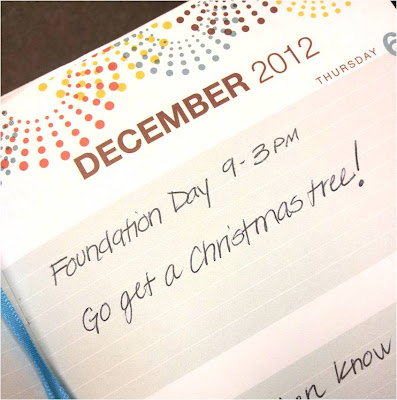 DECEMBER 2012
THURSDAY 6
Foundation Day 9-3PM
Go get a Christmas tree!
know